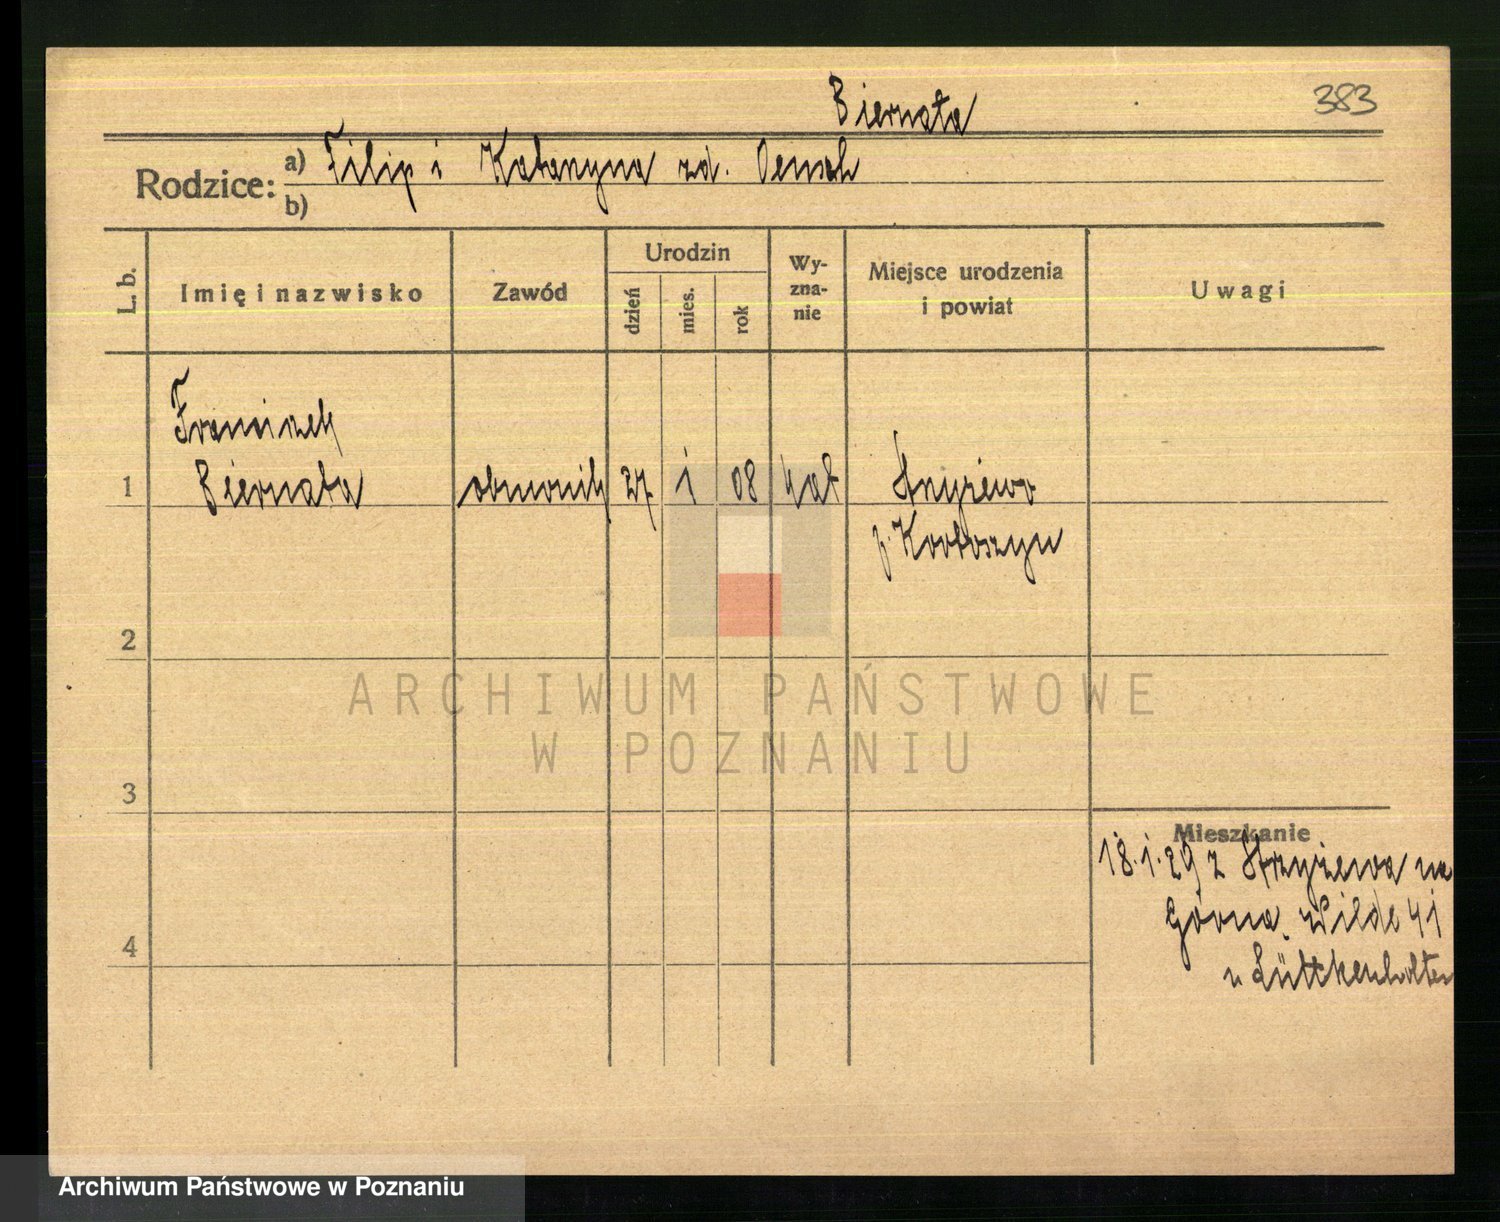 383
Biernata
Rodzice: a) Filip i Katarzyna zd.
b)
L. b.
Imię i nazwisko
Zawód
Urodzin
dzień
mies.
rok
Wy-
zna-
nie
Miejsce urodzenia
i powiat
Uwagi
Franciszek
1 Biernata 27 1 08 kat Strzyżewo
p. Krotoszyn
2
3
Mieszkanie
18.1.29 z Strzyżewa na
Górna Wilda 41
4
u Lüttkenholter
ARCHIWUM PAŃSTWOWE
W POZNANIU
Archiwum Państwowe w Poznaniu